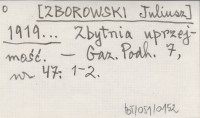 0
[ZBOROWSKI Juliusz]
1919... Zbytnia uprzej-
mość. — Gaz. Podh. 7,
nr 47: 1-2.